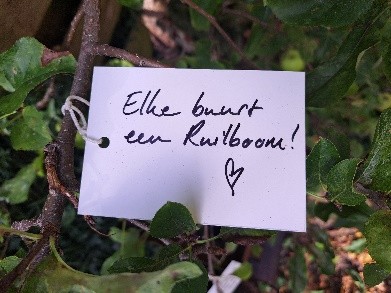 Elke buurt
een Ruilboom!
♡